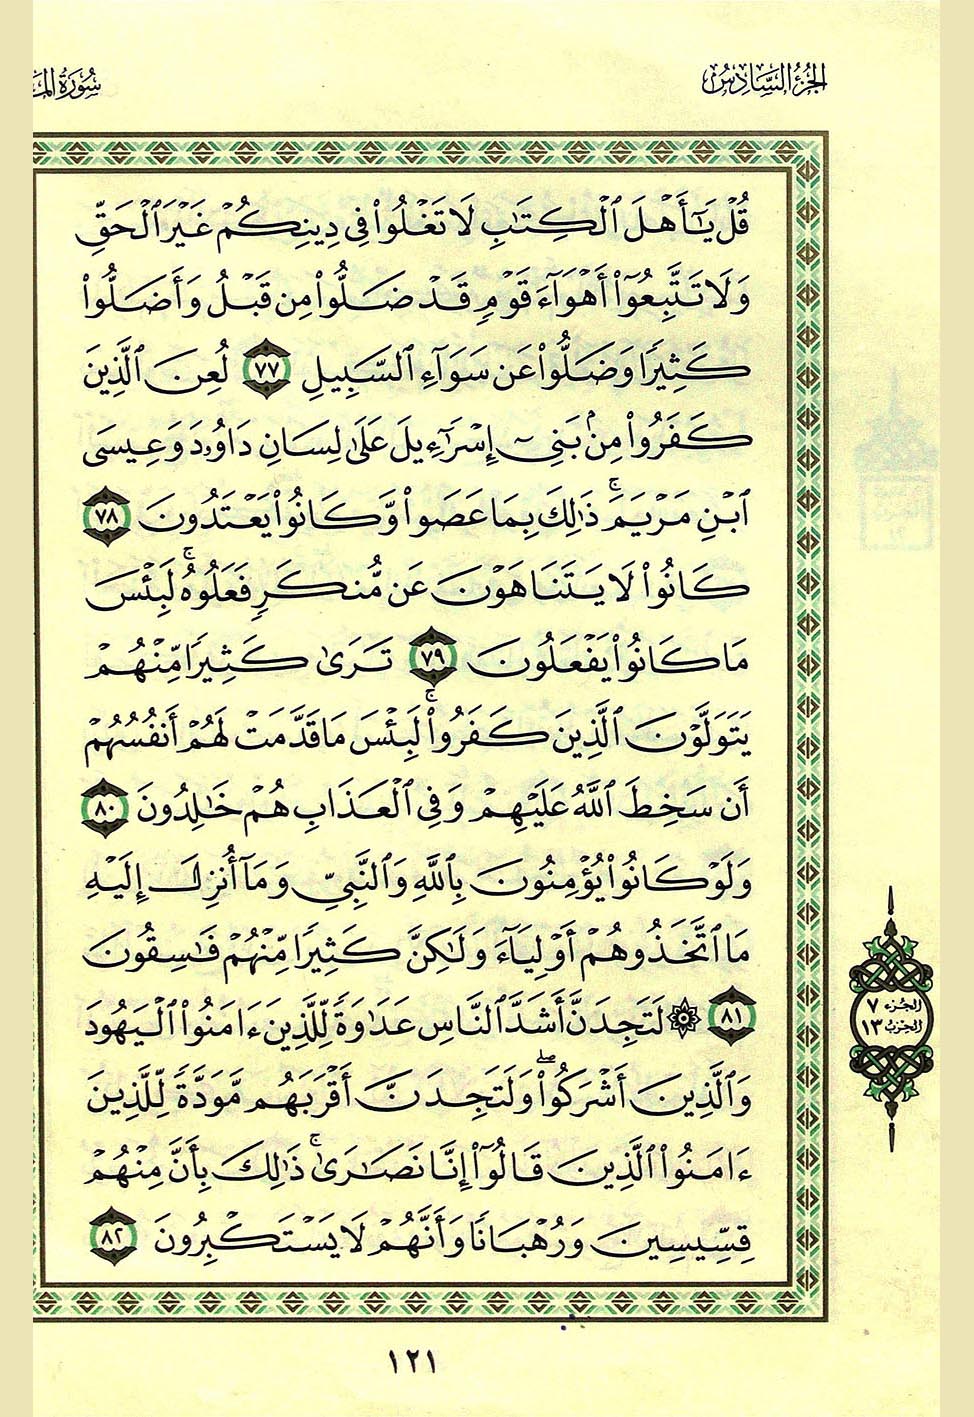 الجزء السادس
سورة الم
قُلْ يَٰٓأَهْلَ ٱلْكِتَٰبِ لَا تَغْلُوا۟ فِى دِينِكُمْ غَيْرَ ٱلْحَقِّ
وَلَا تَتَّبِعُوٓا۟ أَهْوَآءَ قَوْمٍ قَدْ ضَلُّوا۟ مِن قَبْلُ وَأَضَلُّوا۟
كَثِيرًا وَضَلُّوا۟ عَن سَوَآءِ ٱلسَّبِيلِ ٧٧ لُعِنَ ٱلَّذِينَ
كَفَرُوا۟ مِنۢ بَنِىٓ إِسْرَٰٓءِيلَ عَلَىٰ لِسَانِ دَاوُۥدَ وَعِيسَى
ٱبْنِ مَرْيَمَ ۚ ذَٰلِكَ بِمَا عَصَوا۟ وَّكَانُوا۟ يَعْتَدُونَ ٧٨
كَانُوا۟ لَا يَتَنَاهَوْنَ عَن مُّنكَرٍ فَعَلُوهُ ۚ لَبِئْسَ
مَا كَانُوا۟ يَفْعَلُونَ ٧٩ تَرَىٰ كَثِيرًا مِّنْهُمْ
يَتَوَلَّوْنَ ٱلَّذِينَ كَفَرُوا۟ ۚ لَبِئْسَ مَا قَدَّمَتْ لَهُمْ أَنفُسُهُمْ
أَن سَخِطَ ٱللَّهُ عَلَيْهِمْ وَفِى ٱلْعَذَابِ هُمْ خَٰلِدُونَ ٨٠
وَلَوْ كَانُوا۟ يُؤْمِنُونَ بِٱللَّهِ وَٱلنَّبِىِّ وَمَآ أُنزِلَ إِلَيْهِ
مَا ٱتَّخَذُوهُمْ أَوْلِيَآءَ وَلَٰكِنَّ كَثِيرًا مِّنْهُمْ فَٰسِقُونَ
٨١ ۞ لَتَجِدَنَّ أَشَدَّ ٱلنَّاسِ عَدَٰوَةً لِّلَّذِينَ ءَامَنُوا۟ ٱلْيَهُودَ
وَٱلَّذِينَ أَشْرَكُوا۟ ۖ وَلَتَجِدَنَّ أَقْرَبَهُم مَّوَدَّةً لِّلَّذِينَ
ءَامَنُوا۟ ٱلَّذِينَ قَالُوٓا۟ إِنَّا نَصَٰرَىٰ ۚ ذَٰلِكَ بِأَنَّ مِنْهُمْ
قِسِّيسِينَ وَرُهْبَانًا وَأَنَّهُمْ لَا يَسْتَكْبِرُونَ ٨٢
الجزء ٧
الحزب ١٣
١٢١